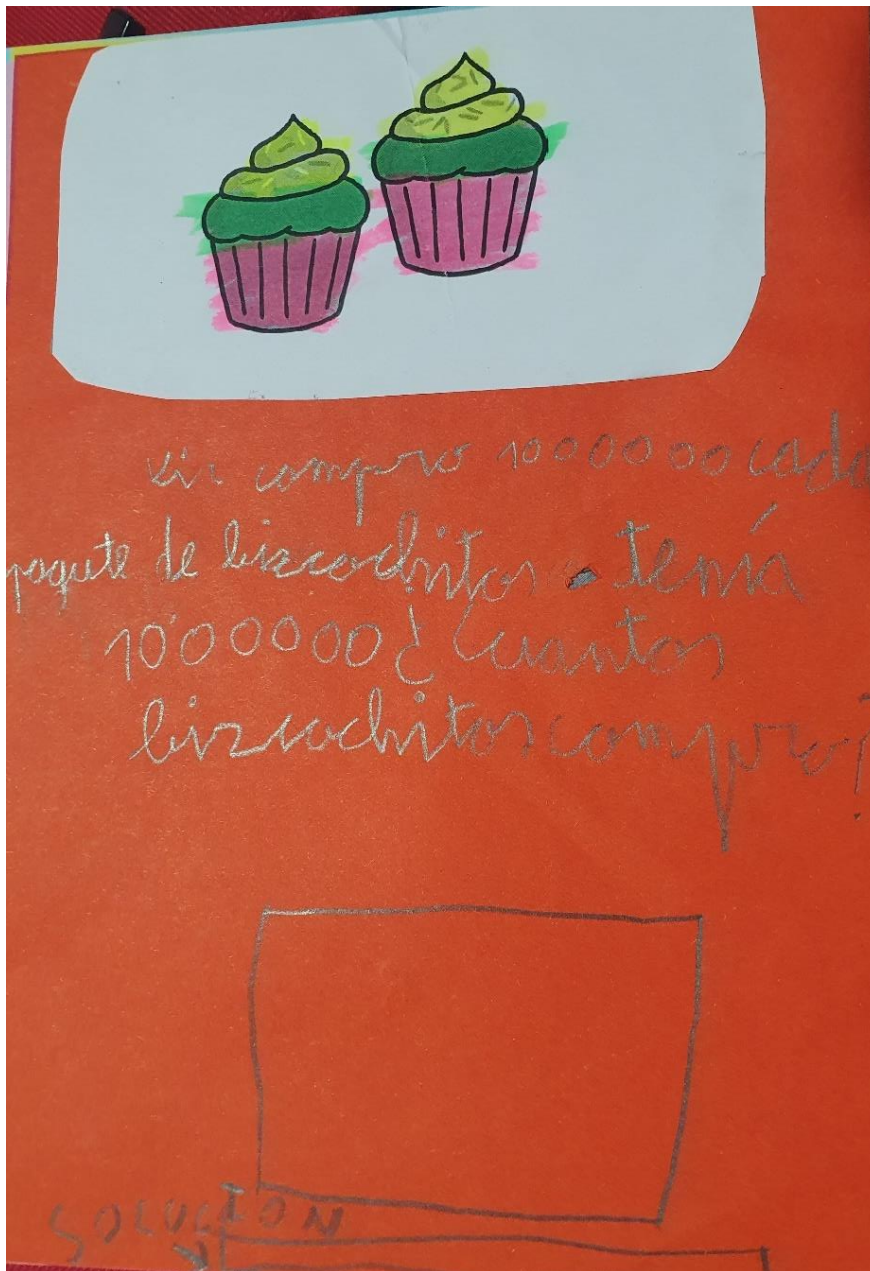 Si compro 1000000 cada
paquete de biscochitos tenía
1000000 ¿Cuantos
bizcochitos compro?
SOLUCION